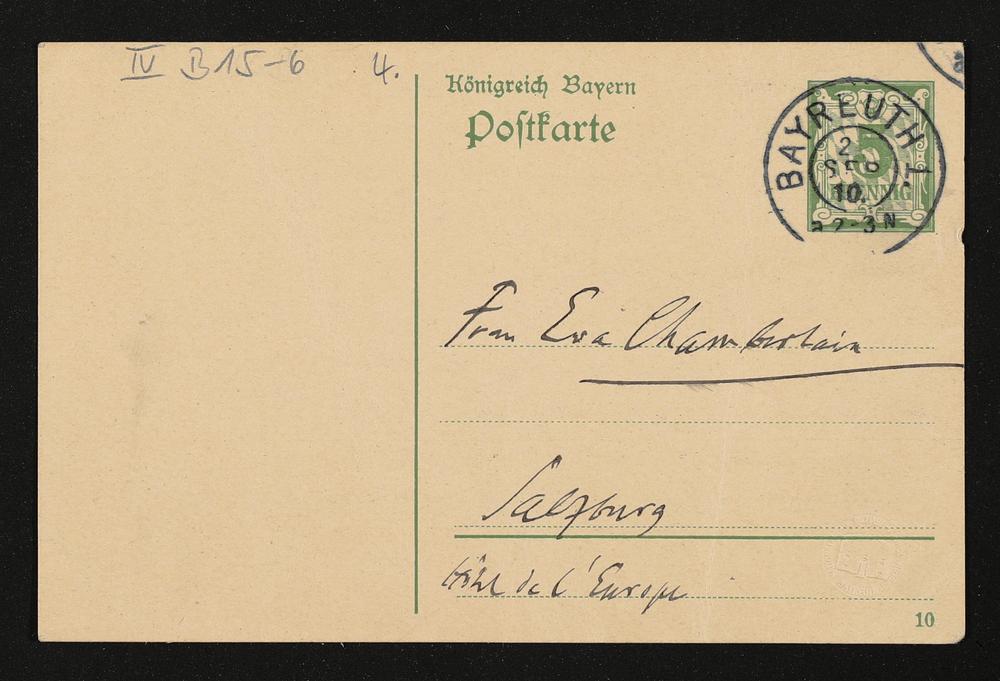 IV B 15-6 4.
Königreich Bayern
Postkarte
BAYREUTH 1.
2
SEP
10.
2-3 N
5
PFENNIG
Frau Eva Chamberlain
Salzburg
Hôtel de l'Europe
10